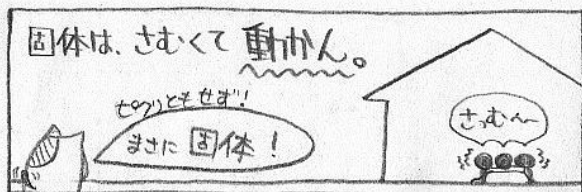 固体は、さむくて動かん。
ピクリともせず!
まさに固体!
さっむ〜〜